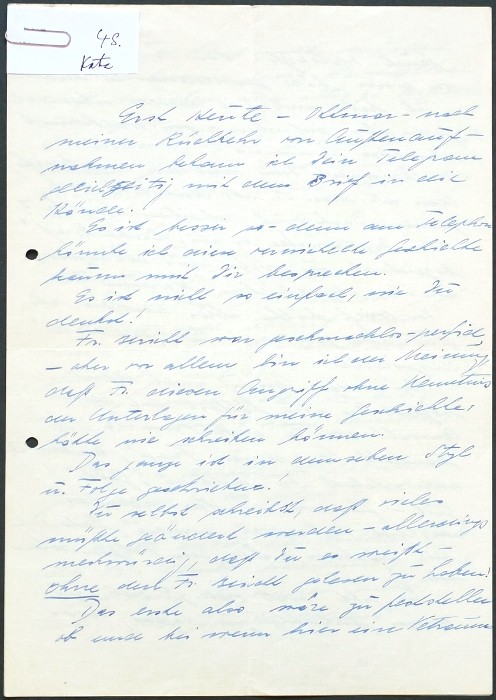 4S.
Kate
Erst Heute – Ottmar – nach
meiner Rückkehr von Außenauf-
nahmen bekam ich Dein Telegram
gleichzeitig mit dem Brief in die
Hände.
Es ist besser so – denn am Telephon
könnte ich diese verwickelte Geschichte
kaum mit Dir besprechen.
Es ist nicht so einfach, wie Du
denkst!
Fr. war geschmacklos – perfid,
– aber vor allem bin ich der Meinung,
daß Fr. diesen Angriff ohne Kenntniss
der Unterlagen für meine Geschichte,
hätte nie schreiben können.
Das ganze ist in demselben Styl
u. Folge geschrieben!
Du selbst schreibst, daß vieles
müßte geändert werden – allerdings
merkwürdig, daß Du es weißt –
ohne den Fr. gelesen zu haben!
Das erste also wäre zu feststellen
ob und bei wem hier eine